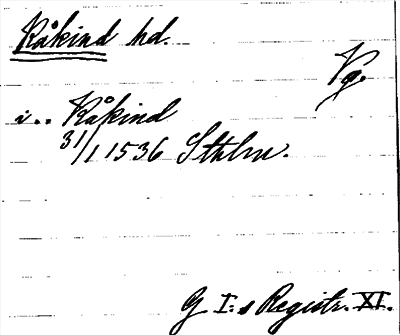 Råkind hd.
Vg.
i.. Råkind
31/1 1536 Sthlm.
G I:s Registr. XI.